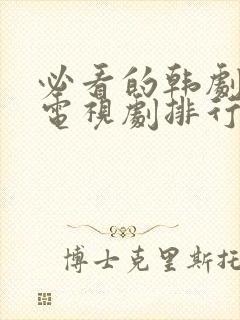 必看的韩劇
電視劇排行
博士克里斯托